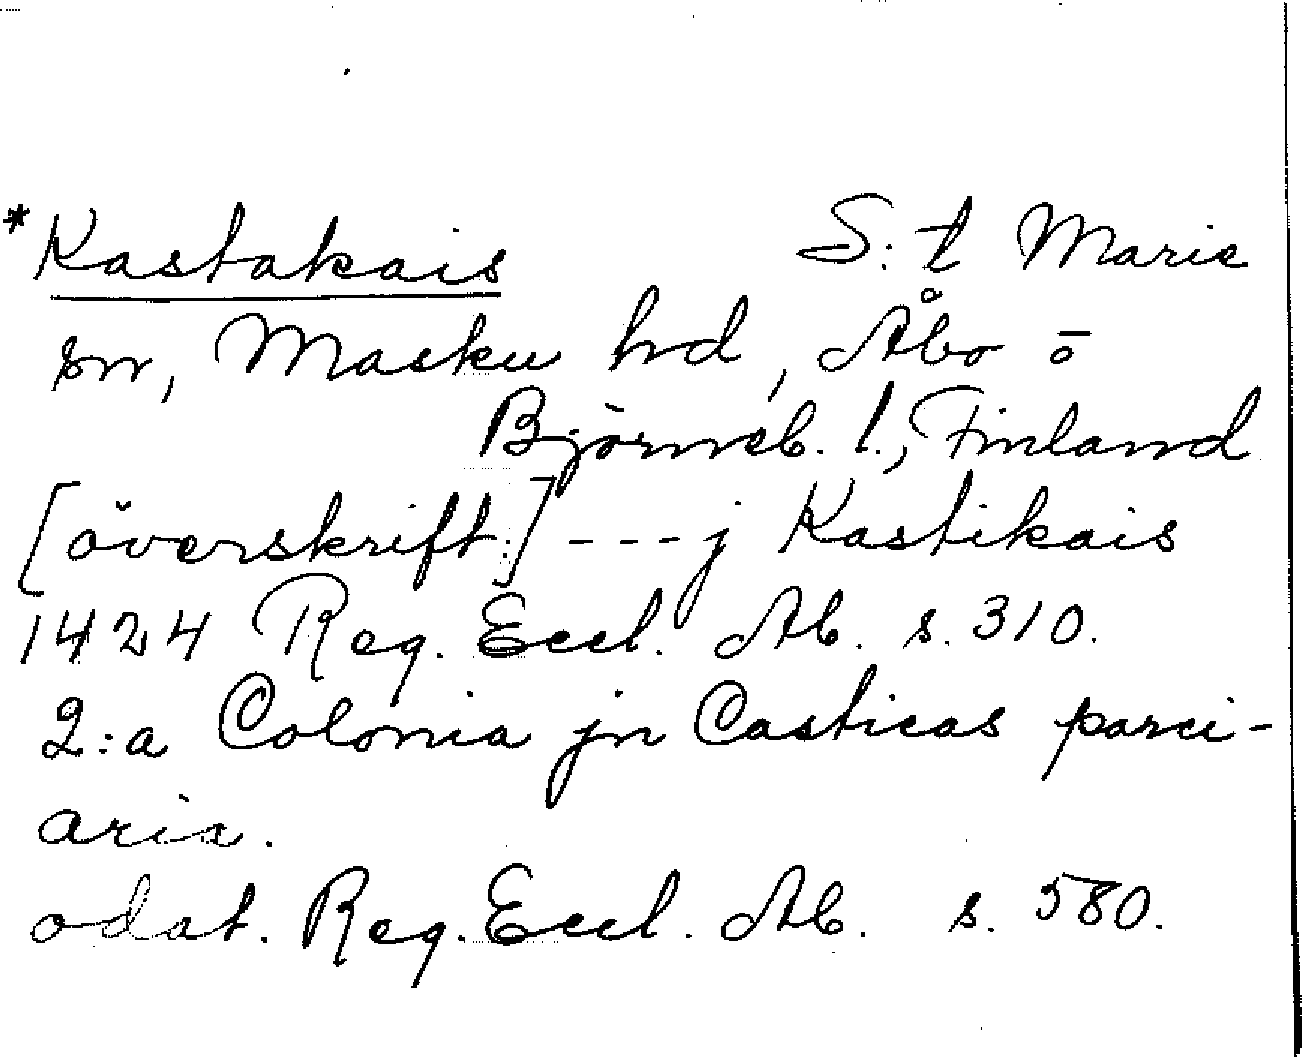 *Kastakais S:t Marie
sn, Masku hd, Åbo o
Björneb. l., Finland
[överskrift:] --- j Kastikais
1424 Reg. Eccl. Ab. s. 310.
2:a Colonia jn Casticas parci-
aria.
odat. Reg. Eccl. Ab. s. 580.